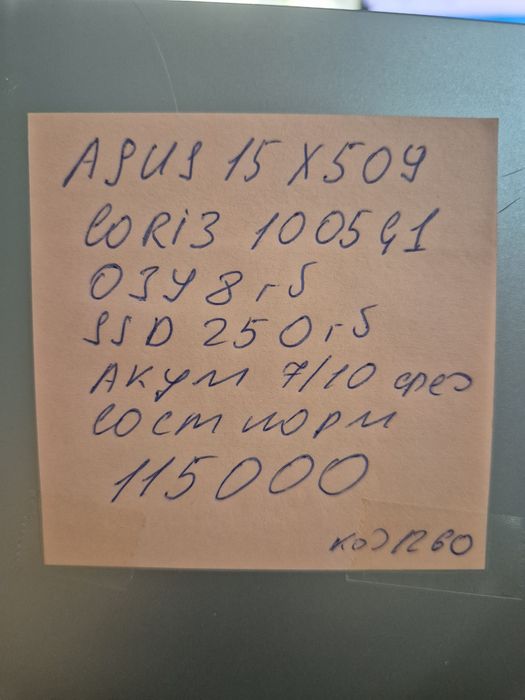 ASUS 15 X509
CORi3 1005G1
ОЗУ 8 гб
SSD 250 гб
АКУМ 7/10
СОСТ НОРМ
115000
код 1260